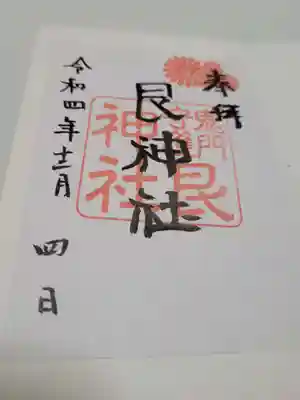 奉拝
艮神社
鬼門
守護
艮
神社
令和四年十二月
四日